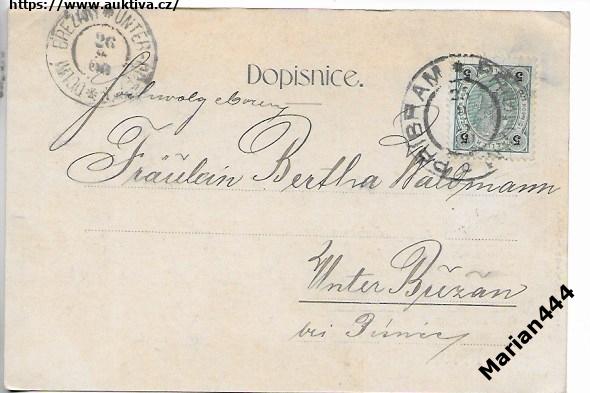 https://www.auktiva.cz/
DOLNÍ BŘEŽANY * UNTER
26
Dopisnice.
PŘÍBRAM * PŘIBRAM
5 5
5 5
Hochwolgeboren
Fräulein Bertha Waldmann
Unter Břežan
bei
Marian444